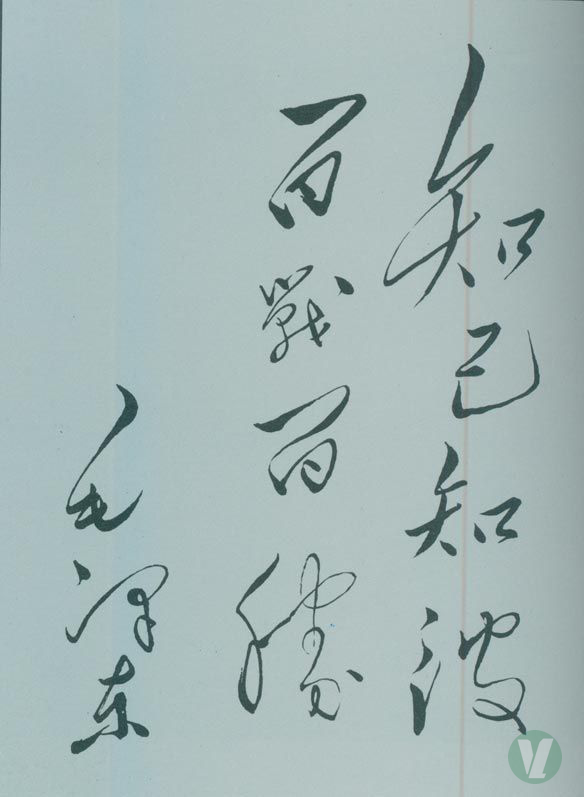 知己知彼
百戰百勝
毛泽东
VL